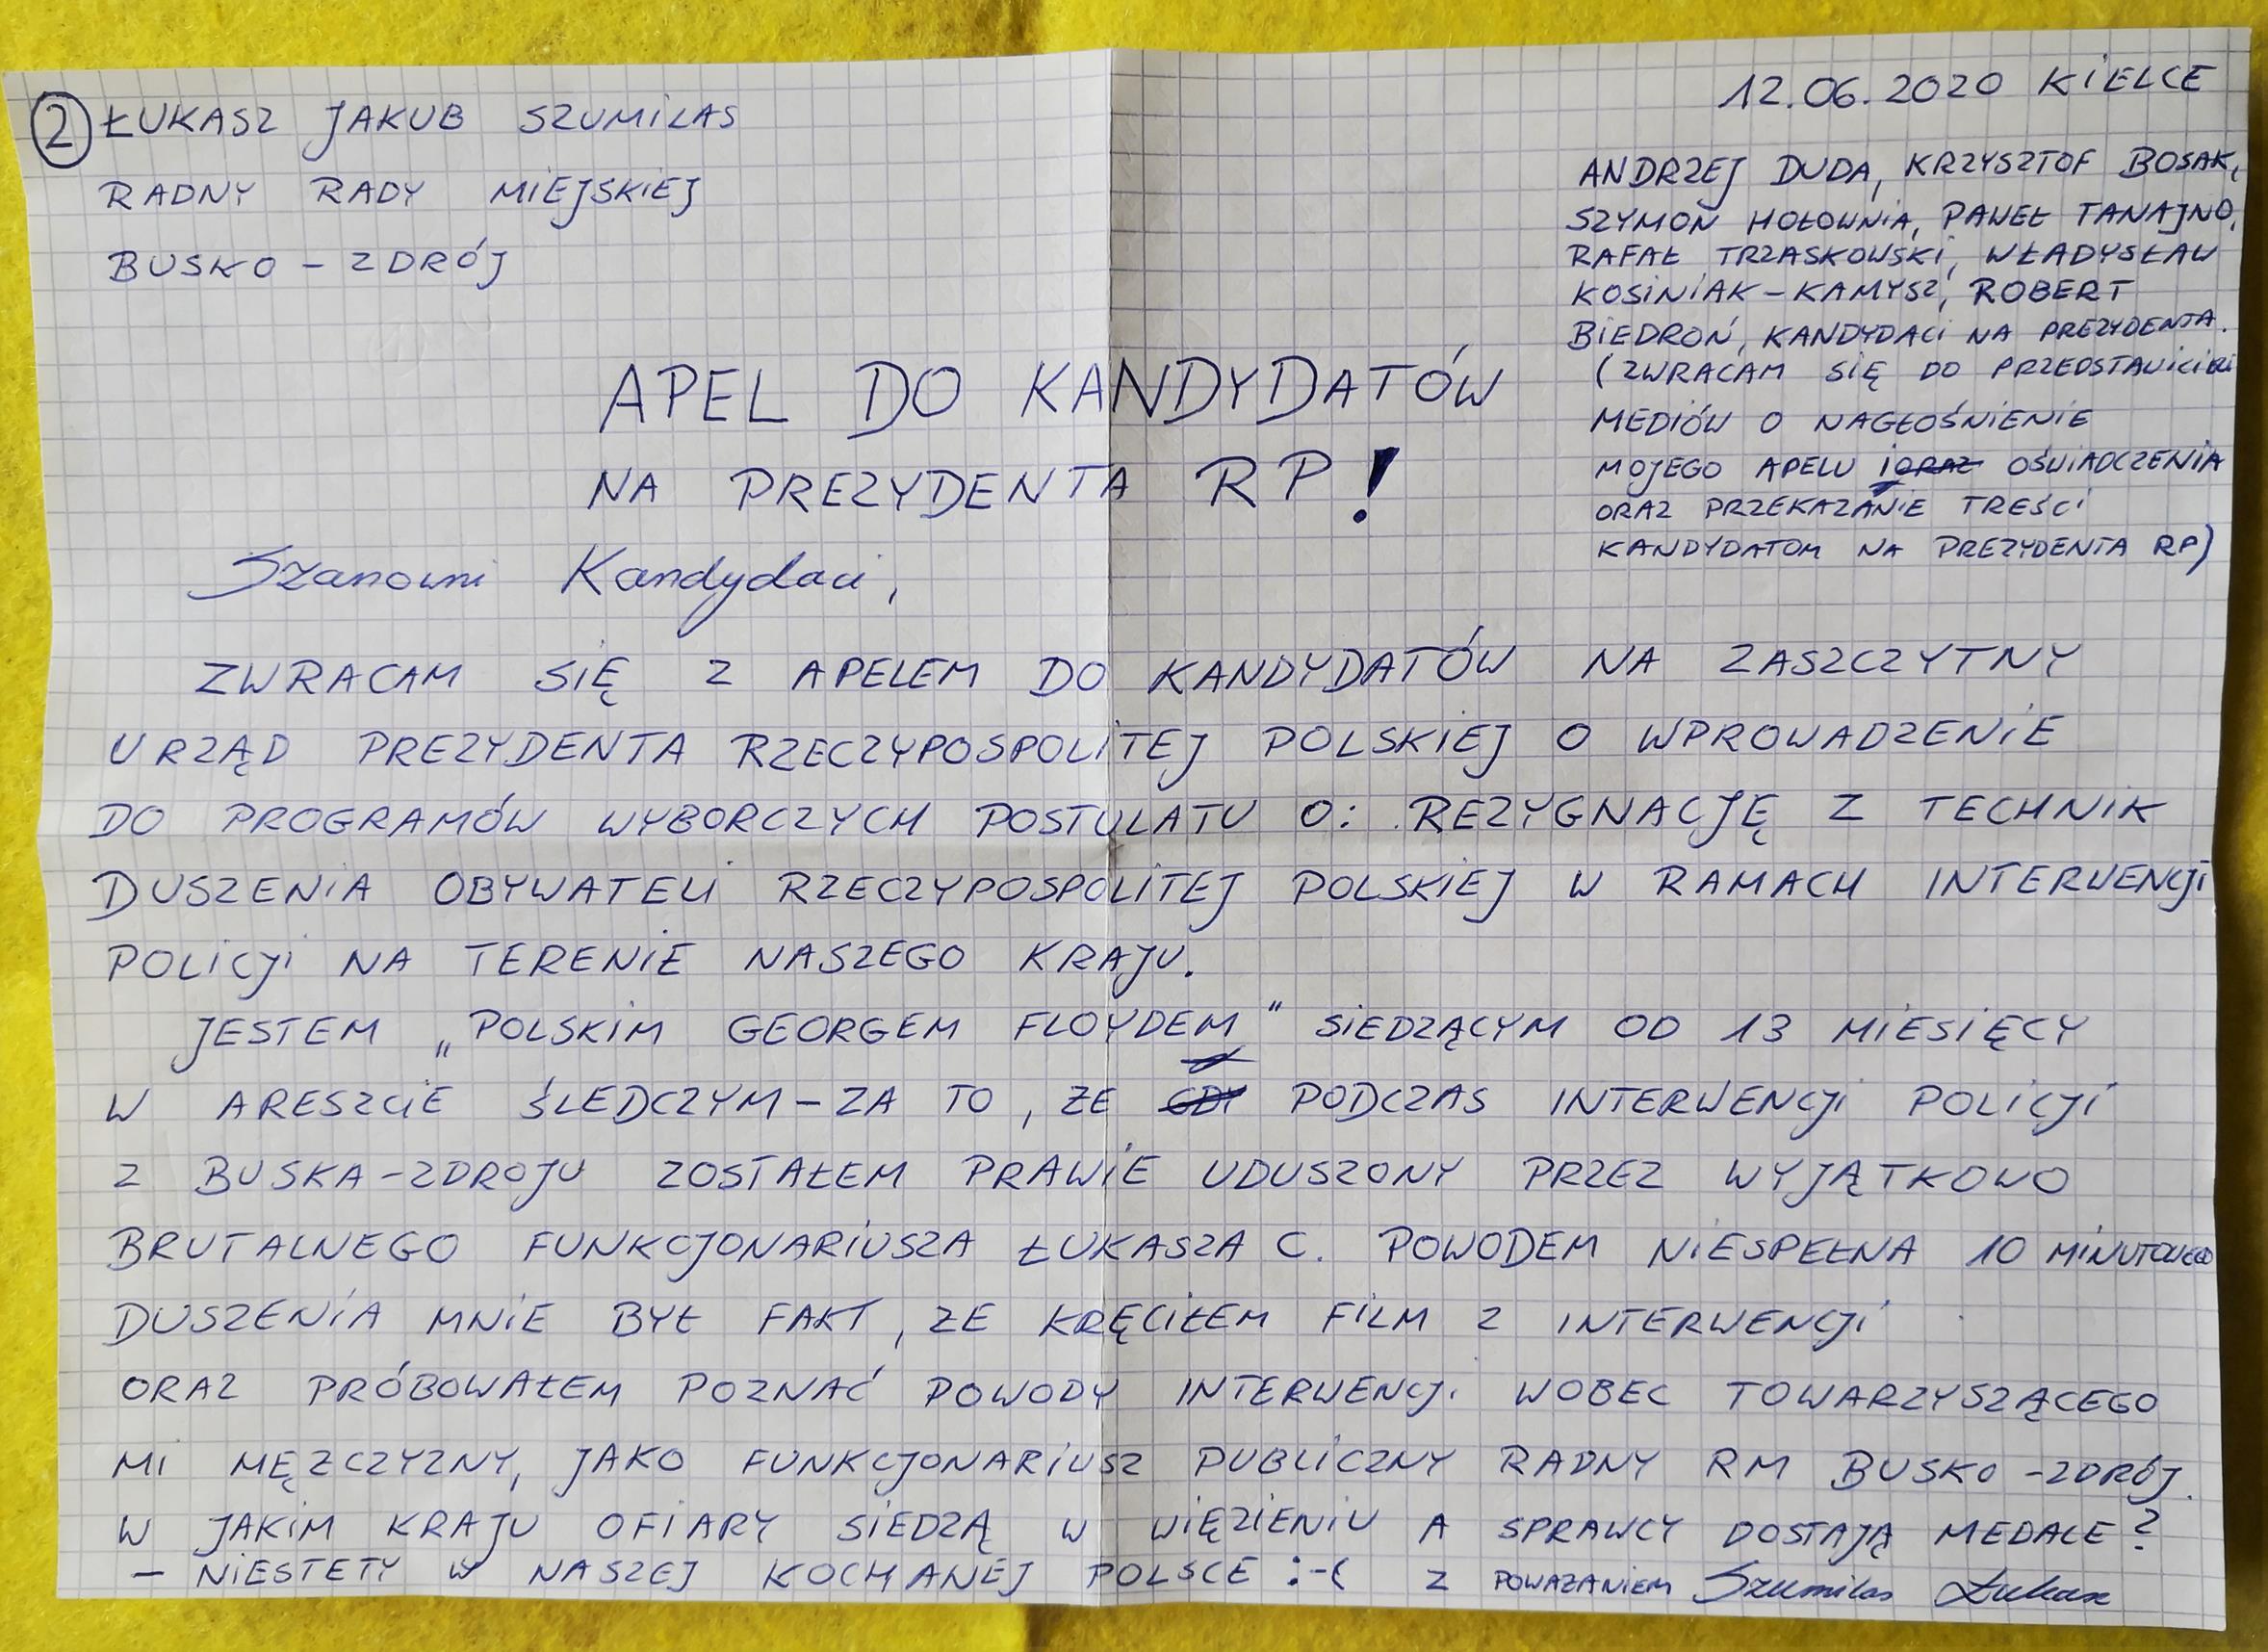 ② ŁUKASZ JAKUB SZUMILAS
RADNY RADY MIEJSKIEJ
BUSKO - ZDRÓJ
12.06.2020 KIELCE
ANDRZEJ DUDA, KRZYSZTOF BOSAK,
SZYMON HOŁOWNIA, PAWEŁ TANAJNO,
RAFAŁ TRZASKOWSKI, WŁADYSŁAW
KOSINIAK-KAMYSZ, ROBERT
BIEDROŃ, KANDYDACI NA PREZYDENTA.
(ZWRACAM SIĘ DO PRZEDSTAWICIELI
MEDIÓW O NAGŁOŚNIENIE
MOJEGO APELU I ORAZ OŚWIADCZENIA
ORAZ PRZEKAZANIE TREŚCI
KANDYDATOM NA PREZYDENTA RP)
APEL DO KANDYDATÓW
NA PREZYDENTA RP!
Szanowni Kandydaci,
ZWRACAM SIĘ Z APELEM DO KANDYDATÓW NA ZASZCZYTNY
URZĄD PREZYDENTA RZECZYPOSPOLITEJ POLSKIEJ O WPROWADZENIE
DO PROGRAMÓW WYBORCZYCH POSTULATU O: REZYGNACJĘ Z TECHNIK
DUSZENIA OBYWATELI RZECZYPOSPOLITEJ POLSKIEJ W RAMACH INTERWENCJI
POLICJI NA TERENIE NASZEGO KRAJU.
JESTEM „POLSKIM GEORGEM FLOYDEM" SIEDZĄCYM OD 13 MIESIĘCY
W ARESZCIE ŚLEDCZYM - ZA TO, ŻE GDY PODCZAS INTERWENCJI POLICJI
Z BUSKA-ZDROJU ZOSTAŁEM PRAWIE UDUSZONY PRZEZ WYJĄTKOWO
BRUTALNEGO FUNKCJONARIUSZA ŁUKASZA C. POWODEM NIESPEŁNA 10 MINUTOWEGO
DUSZENIA MNIE BYŁ FAKT, ŻE KRĘCIŁEM FILM Z INTERWENCJI
ORAZ PRÓBOWAŁEM POZNAĆ POWODY INTERWENCJI WOBEC TOWARZYSZĄCEGO
MI MĘŻCZYZNY, JAKO FUNKCJONARIUSZ PUBLICZNY RADNY RM BUSKO -ZDRÓJ.
W JAKIM KRAJU OFIARY SIEDZĄ W WIĘZIENIU A SPRAWCY DOSTAJĄ MEDALE?
- NIESTETY W NASZEJ KOCHANEJ POLSCE :-( Z POWAŻANIEM Szumilas Łukasz